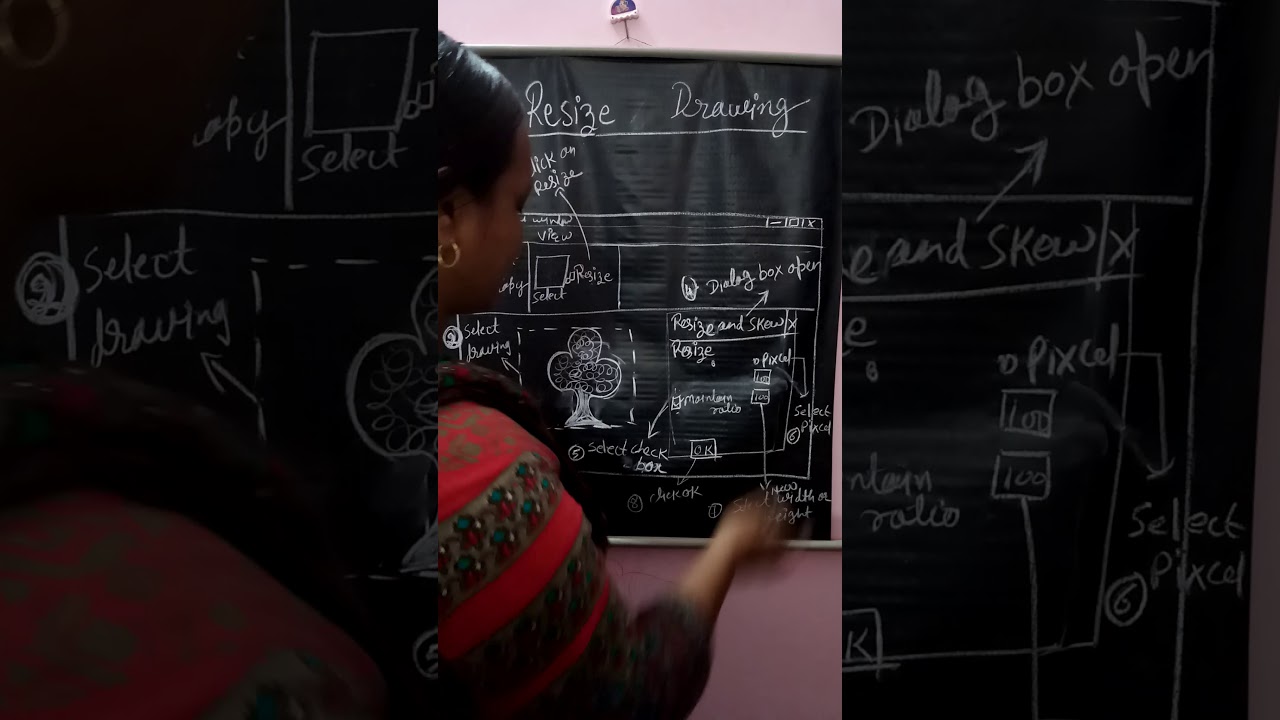 Resize Drawing
lick on
Resize
window
view
opy
Select
Resize
④ Dialog box open
② Select
drawing
Resize and Skew X
Resize
Pixcel
100
100
maintain
ratio
Select
⑥ Pixcel
⑤ Select check
box
OK
⑧ click ok
new
width or
eight